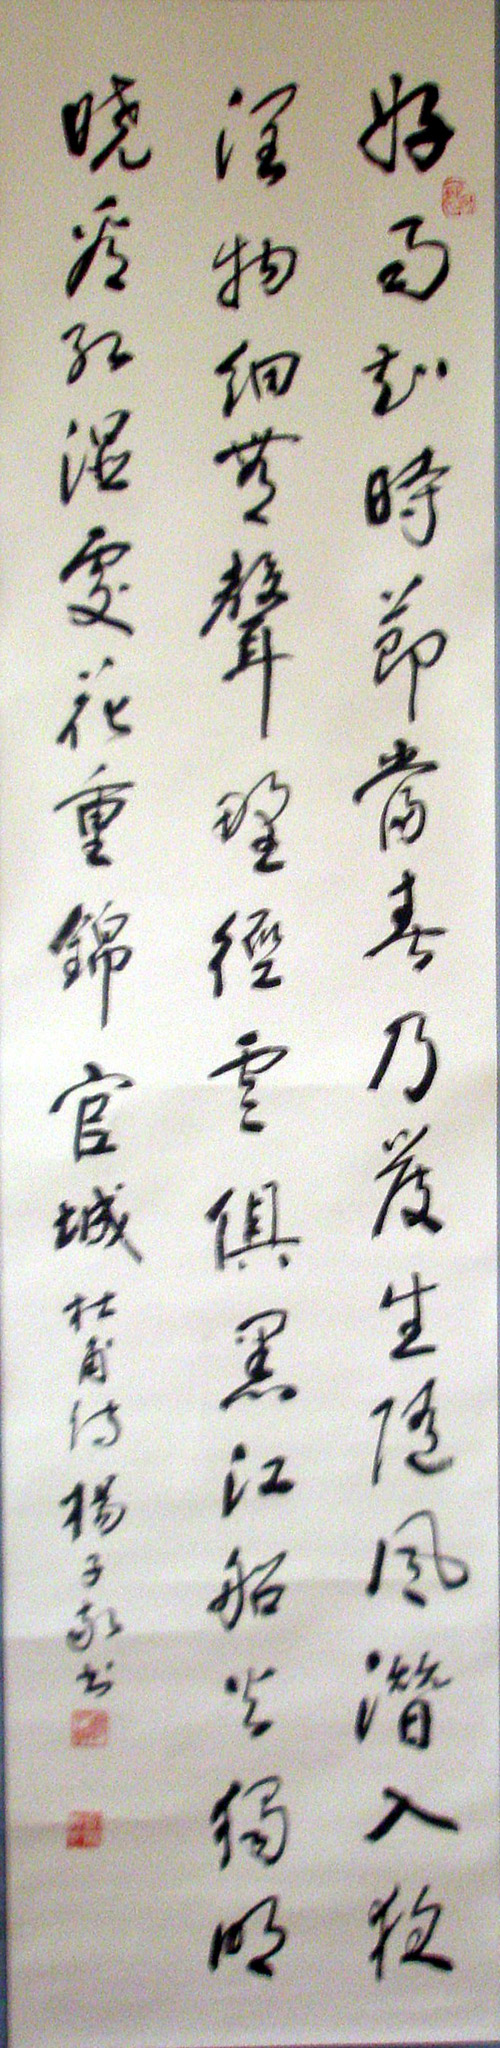 好雨知時節當春乃發生隨風潛入夜
潤物細無聲野徑雲俱黑江船火獨明
曉看紅濕處花重錦官城杜甫詩楊子敬書